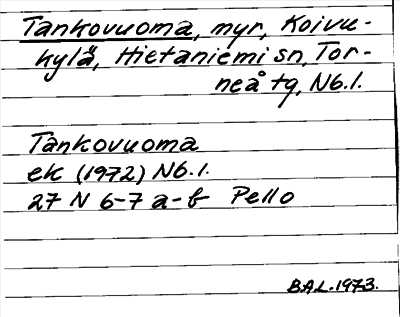 Tankovuoma, myr, Koivu-
kylä, Hietaniemi sn, Tor-
neå tg, Nb.l.
Tankovuoma
ek (1972) Nb.l.
27 N 6-7 a-b Pello
B.A.L. 1973.